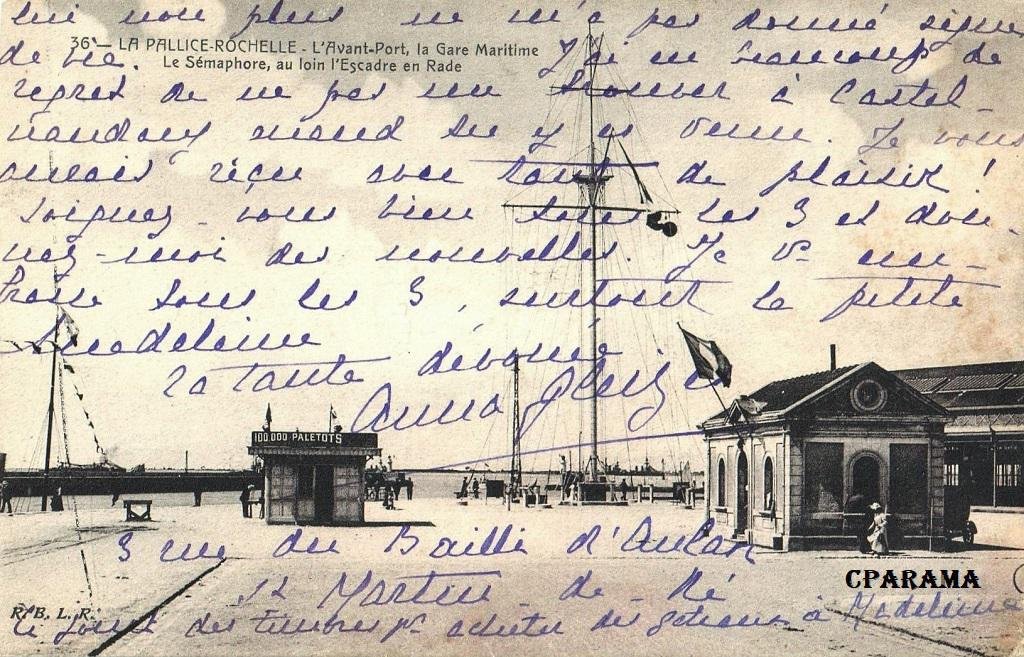 lui non plus ne m'a pas donné signe
36 — LA PALLICE-ROCHELLE - L'Avant-Port, la Gare Maritime
Le Sémaphore, au loin l'Escadre en Rade
de vie. J'ai eu beaucoup de
regret de ne pas me trouver à Castel-
naudary quand tu y es venu. Je vous
aurais reçu avec tant de plaisir !
Soignez-vous bien tous les 3 et don-
nez-moi des nouvelles. Je vs em-
brasse tous les 3, surtout la petite
Madeleine
la tante dévouée
Anna
100.000 PALETOTS
3 rue du Bailli d'Aulan
St Martin de Ré
CPARAMA
R. B. L. R.
je joins des timbres pr acheter des gateaux à Madeleine